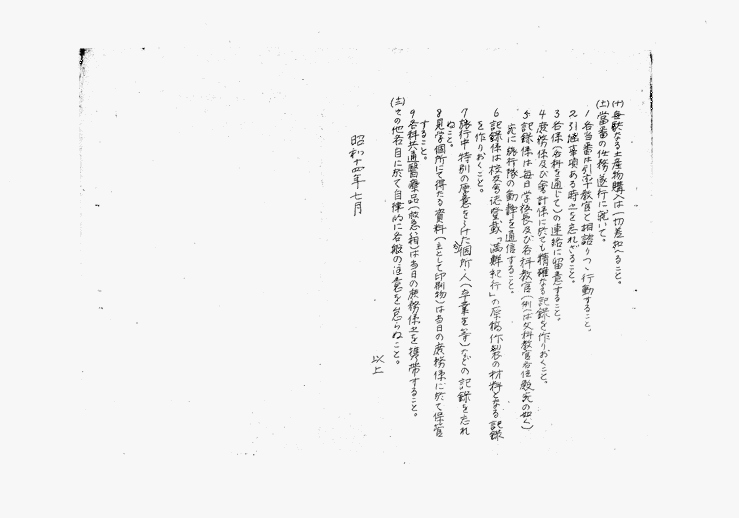 (十)無駄なる土産物購入は一切差控へること。
(土)當番の任務遂行に就いて。
1 各当番は引率教官と相談しつゝ行動すること。
2 引継事項ある時之を忘れざること。
3 各係(各科を通じて)の連絡に留意すること。
4 庶務係及び會計係に於ても精確なる記録を作りおくこと。
5 記録係は毎日学校長及び各科教官(例へば文科教官各位殿)の如く
先に旅行隊の動静を通信すること。
6 記録係は校友会誌登載「満鮮紀行」の原稿作製の材料となる記録
を作りおくこと。
7 旅行中特別の厚意をうけた個所・人(卒業生等)などの記録を忘れ
ぬこと。
8 見学個所にて得たる資料(主として印刷物)は当日の庶務係に於て保管
すること。
9 各科共通醫療品(救急箱)は当日の庶務係之を携帯すること。
(圭)その他各自に於て自律的に各般の注意を怠らぬこと。
以上
昭和十四年七月